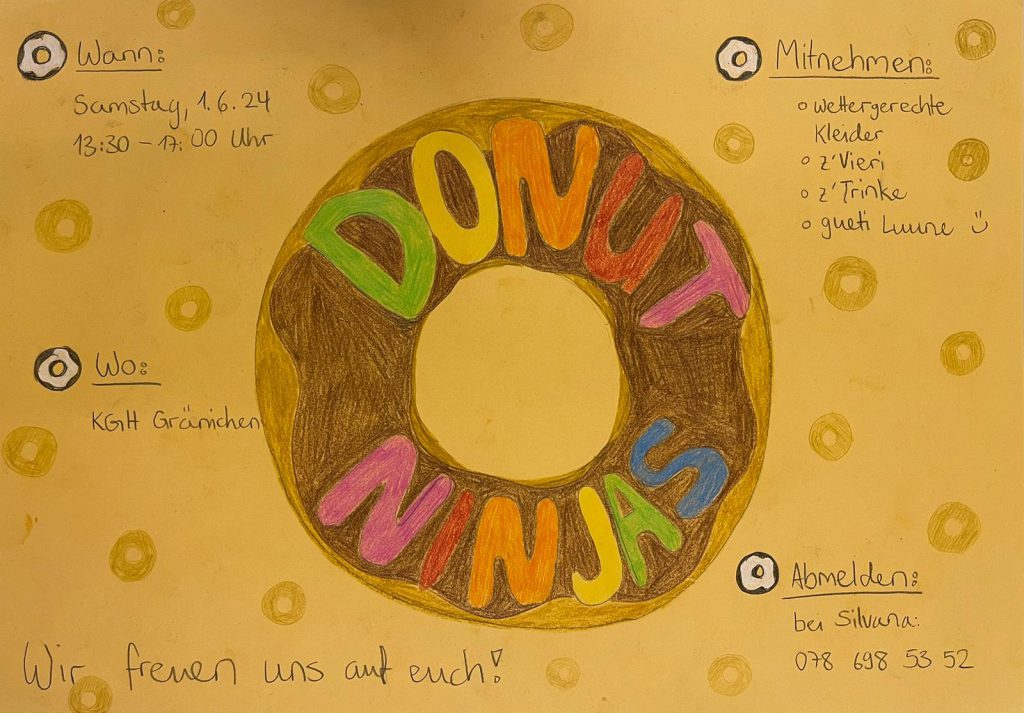 Wann:
Samstag, 1.6.24
13:30 - 17:00 Uhr
Wo:
KGH Gränichen
DONUT
NINJAS
Mitnehmen:
wettergerechte
Kleider
z'Vieri
z'Trinke
gueti Luune
Abmelden:
bei Silvana:
078 698 53 52
Wir freuen uns auf euch!